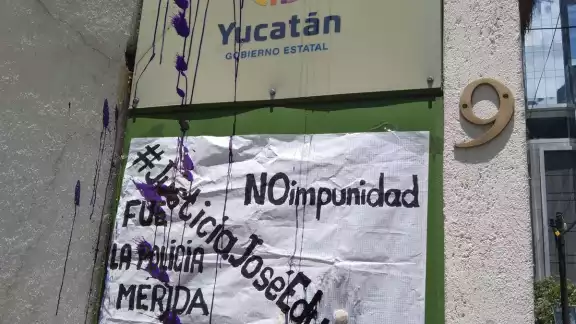 Yucatán
GOBIERNO ESTATAL
9
NOimpunidad
#JusticiaJoséEdu
FUE
LA POLICIA
MERIDA